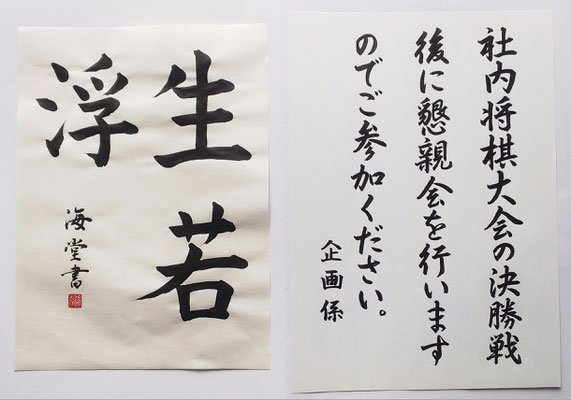 生若
浮
海堂書
社内将棋大会の決勝戦
後に懇親会を行います
のでご参加ください。
企画係